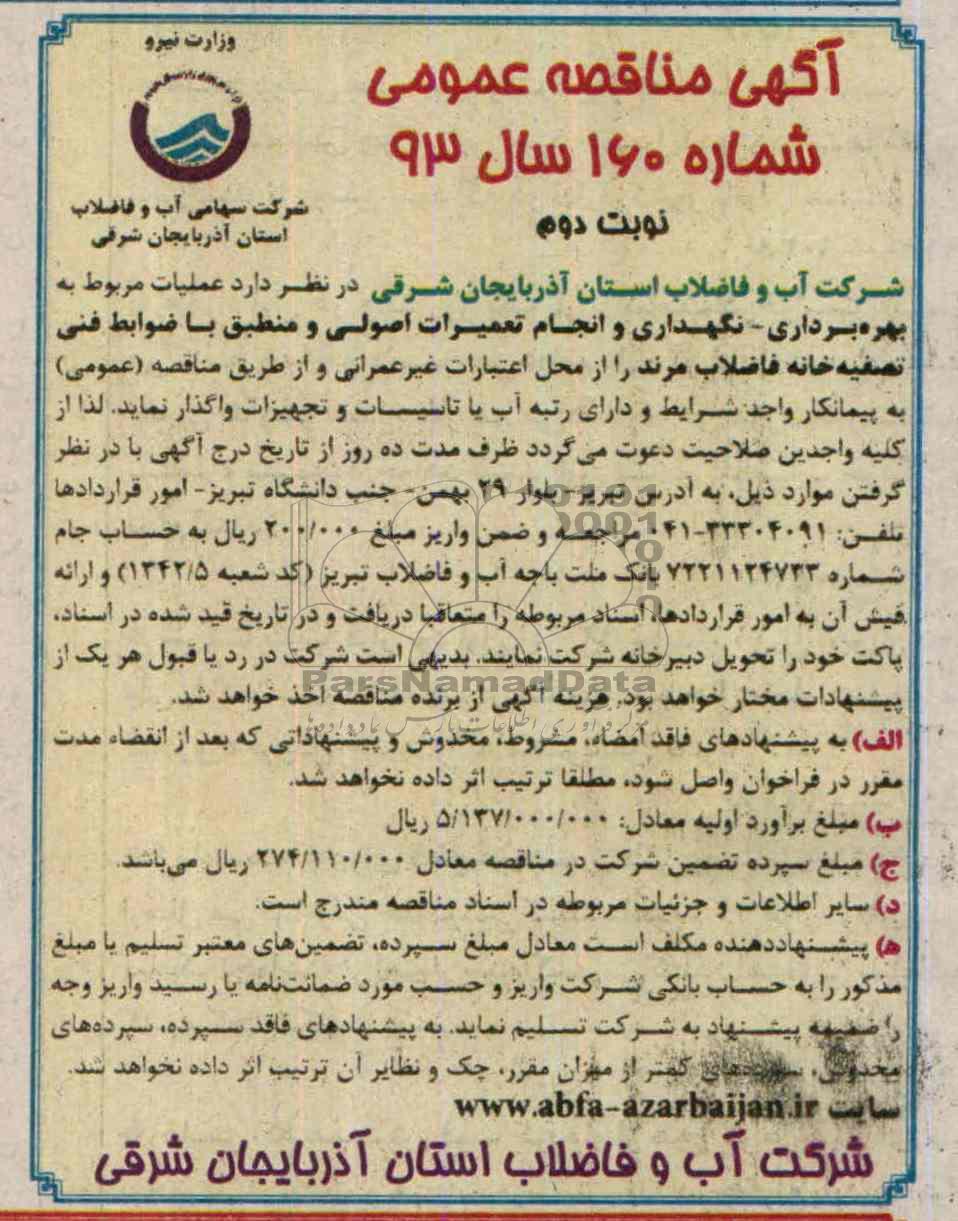 وزارت نیرو
شرکت سهامی آب و فاضلاب
استان آذربایجان شرقی
آگهی مناقصه عمومی
شماره ۱۶۰ سال ۹۳
نوبت دوم
شرکت آب و فاضلاب استان آذربایجان شرقی در نظر دارد عملیات مربوط به
بهره‌برداری- نگهداری و انجام تعمیرات اصولی و منطبق با ضوابط فنی
تصفیه‌خانه فاضلاب مرند را از محل اعتبارات غیرعمرانی و از طریق مناقصه (عمومی)
به پیمانکار واجد شرایط و دارای رتبه آب یا تاسیسات و تجهیزات واگذار نماید. لذا از
کلیه واجدین صلاحیت دعوت می‌گردد ظرف مدت ده روز از تاریخ درج آگهی با در نظر
گرفتن موارد ذیل، به آدرس تبریز- بلوار ۲۹ بهمن- جنب دانشگاه تبریز- امور قراردادها
تلفن: ۳۳۳۰۴۰۹۱-۰۴۱ مراجعه و ضمن واریز مبلغ ۲۰۰/۰۰۰ ریال به حساب جام
شماره ۷۲۲۱۱۲۴۷۳۳ بانک ملت باجه آب و فاضلاب تبریز (کد شعبه ۱۳۴۲/۵) و ارائه
فیش آن به امور قراردادها، اسناد مربوطه را متعاقبا دریافت و در تاریخ قید شده در اسناد،
پاکت خود را تحویل دبیرخانه شرکت نمایند. بدیهی است شرکت در رد یا قبول هر یک از
پیشنهادات مختار خواهد بود. هزینه آگهی از برنده مناقصه اخذ خواهد شد.
الف) به پیشنهادهای فاقد امضاء، مشروط، مخدوش و پیشنهاداتی که بعد از انقضاء مدت
مقرر در فراخوان واصل شود، مطلقا ترتیب اثر داده نخواهد شد.
ب) مبلغ برآورد اولیه معادل: ۵/۱۳۷/۰۰۰/۰۰۰ ریال
ج) مبلغ سپرده تضمین شرکت در مناقصه معادل ۲۷۴/۱۱۰/۰۰۰ ریال می‌باشد.
د) سایر اطلاعات و جزئیات مربوطه در اسناد مناقصه مندرج است.
ه) پیشنهاددهنده مکلف است معادل مبلغ سپرده، تضمین‌های معتبر تسلیم یا مبلغ
مذکور را به حساب بانکی شرکت واریز و حسب مورد ضمانت‌نامه یا رسید واریز وجه
را ضمیمه پیشنهاد به شرکت تسلیم نماید. به پیشنهادهای فاقد سپرده، سپرده‌های
مخدوش، سپرده‌های کمتر از میزان مقرر، چک و نظایر آن ترتیب اثر داده نخواهد شد.
سایت www.abfa-azarbaijan.ir
شرکت آب و فاضلاب استان آذربایجان شرقی
ParsNamadData